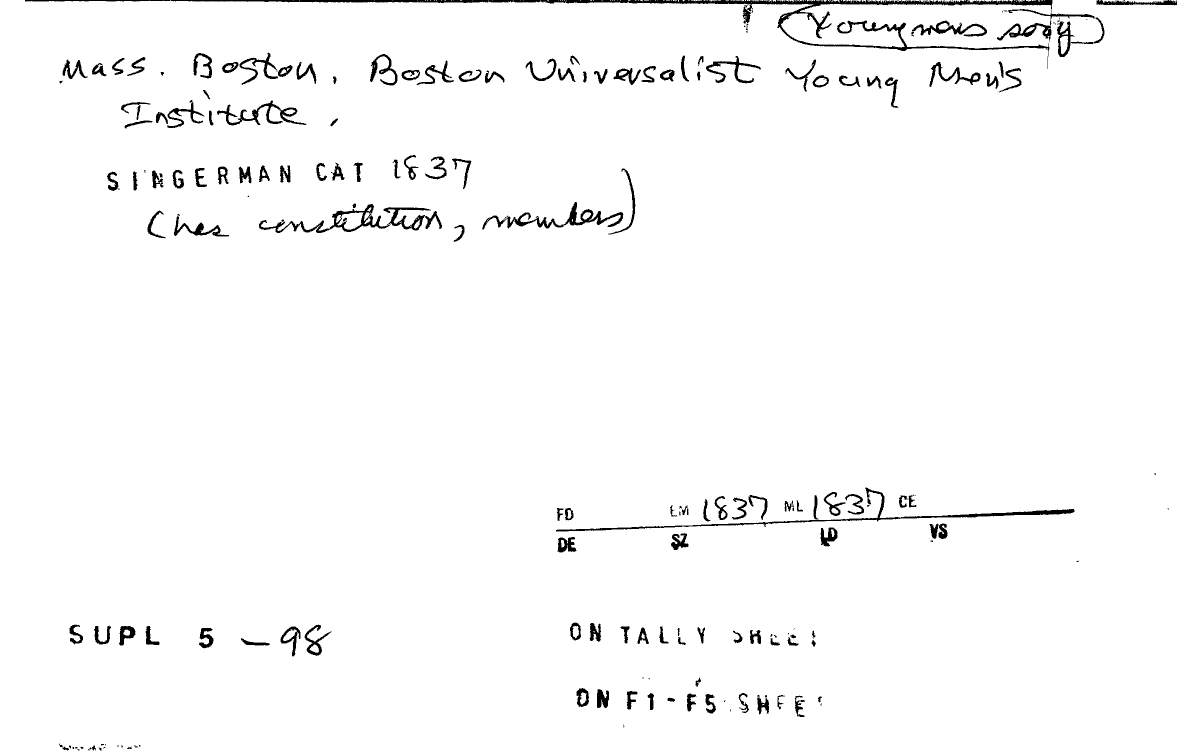 Young mens socy
Mass. Boston. Boston Universalist Young Men's
Institute.
SINGERMAN CAT 1837
(has constitution, members)
FD EM 1837 ML 1837 CE
DE SZ LD VS
SUPL 5 - 98
ON TALLY SHEET
ON F1-F5 SHEET